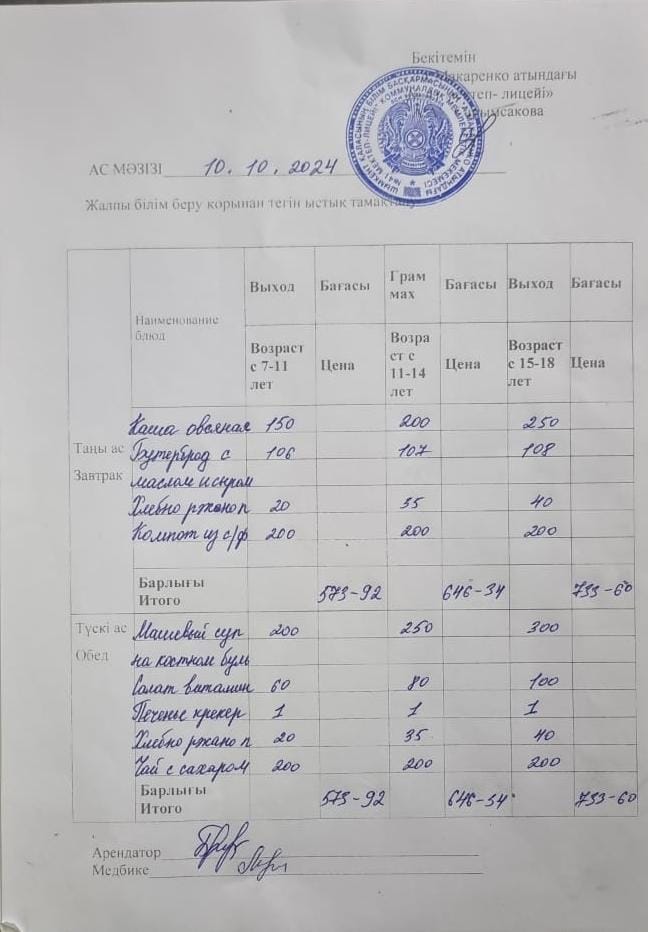 Бекітемін
Макаренко атындағы
мектеп- лицейі»
АС МӘЗІЗІ 10.10.2024
Жалпы білім беру қорынан тегін ыстық тамақтану
Наименование блюд Выход Бағасы Грам мах Бағасы Выход Бағасы
Возраст с 7-11 лет Цена Возра ст с 11-14 лет Цена Возраст с 15-18 лет Цена
Таңы ас Завтрак
Каша овсяная 150 200 250
Бутерброд с 106 107 108
маслом и сыром
Хлебно ржаной 20 35 40
Компот из с/ф 200 200 200
Барлығы Итого 573-92 646-34 733-60
Түскі ас Обед
Машевый суп 200 250 300
на костном буль
Салат витамин 60 80 100
Печенье крекер 1 1 1
Хлебно ржано п 20 35 40
Чай с сахаром 200 200 200
Барлығы Итого 573-92 646-34 733-60
Арендатор
Медбике